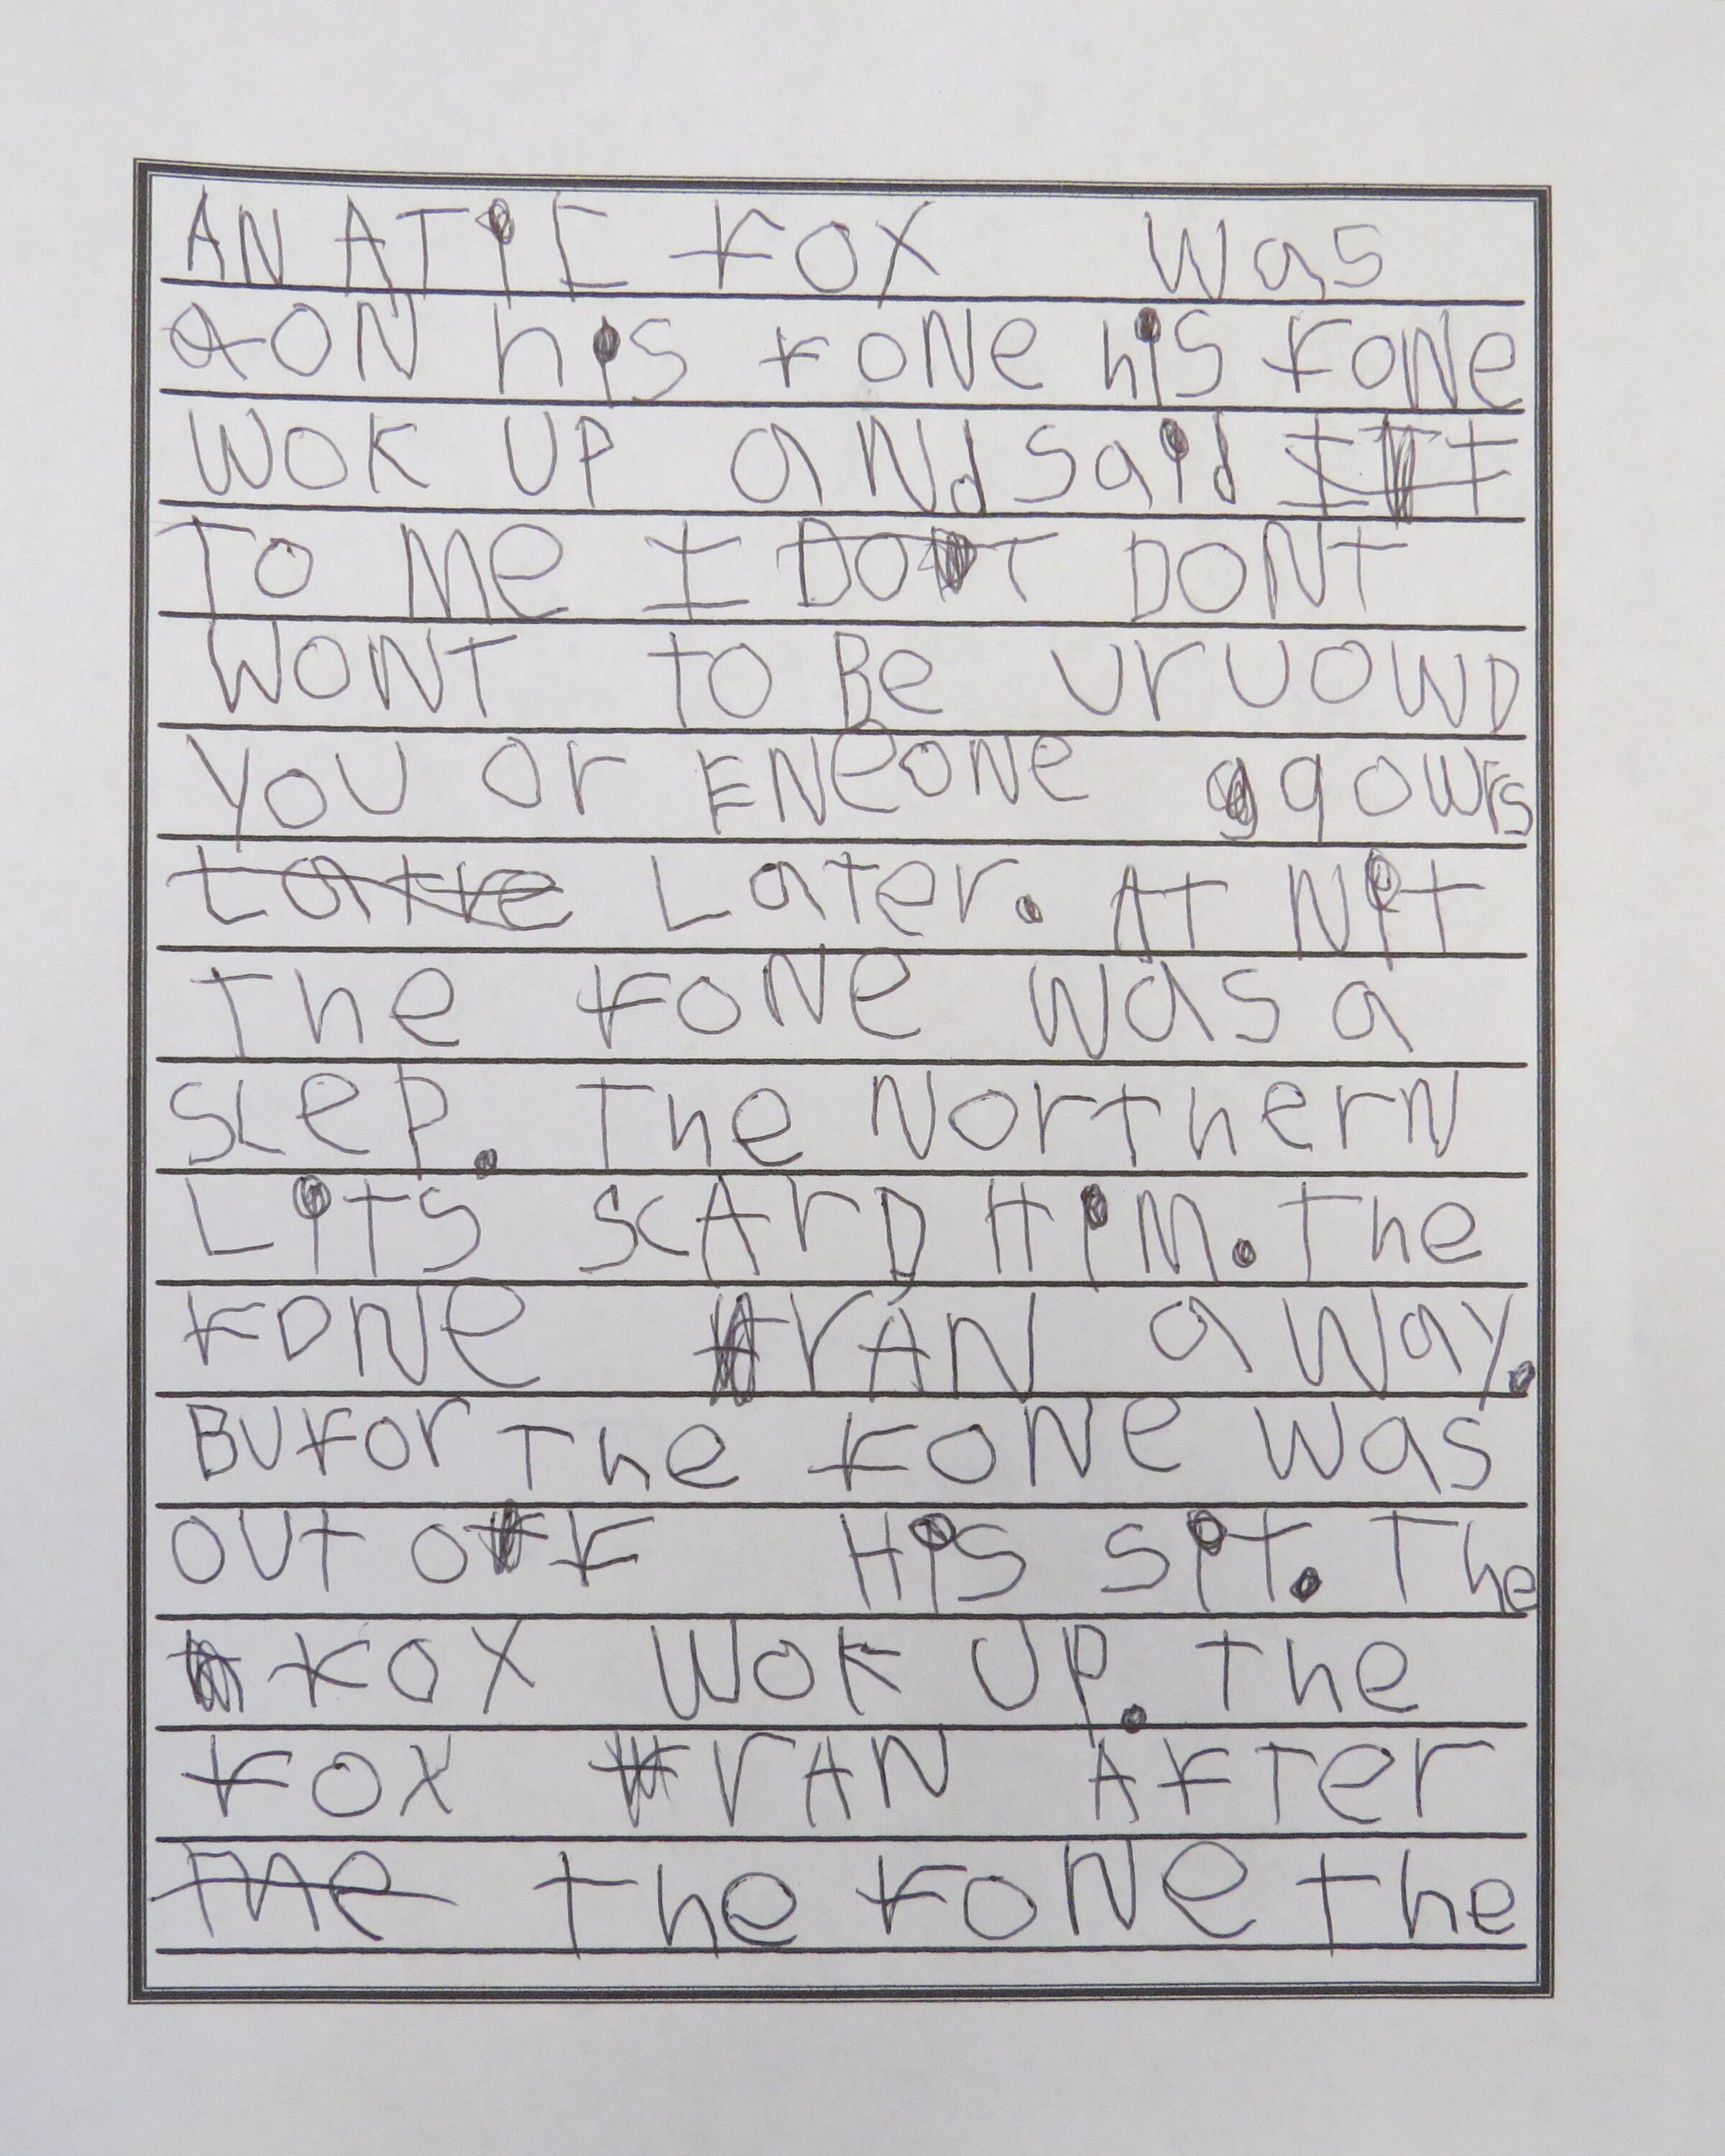 AN ATiE FOX was
ON his FONE his FONE
WOK UP aNd Said I
To Me I DONT
WONT to Be UrUOWD
YOU Or ENeONe qowrs
Later. AT Nit
The FONe was a
SLeP. The NOrtherN
LiTS ScArD HiM. The
FONe rAN a Way.
BUFOr The FONe Was
OUT OF HiS SiT. The
FOX WOK UP. The
FOX rAN AFTer
the FONe the